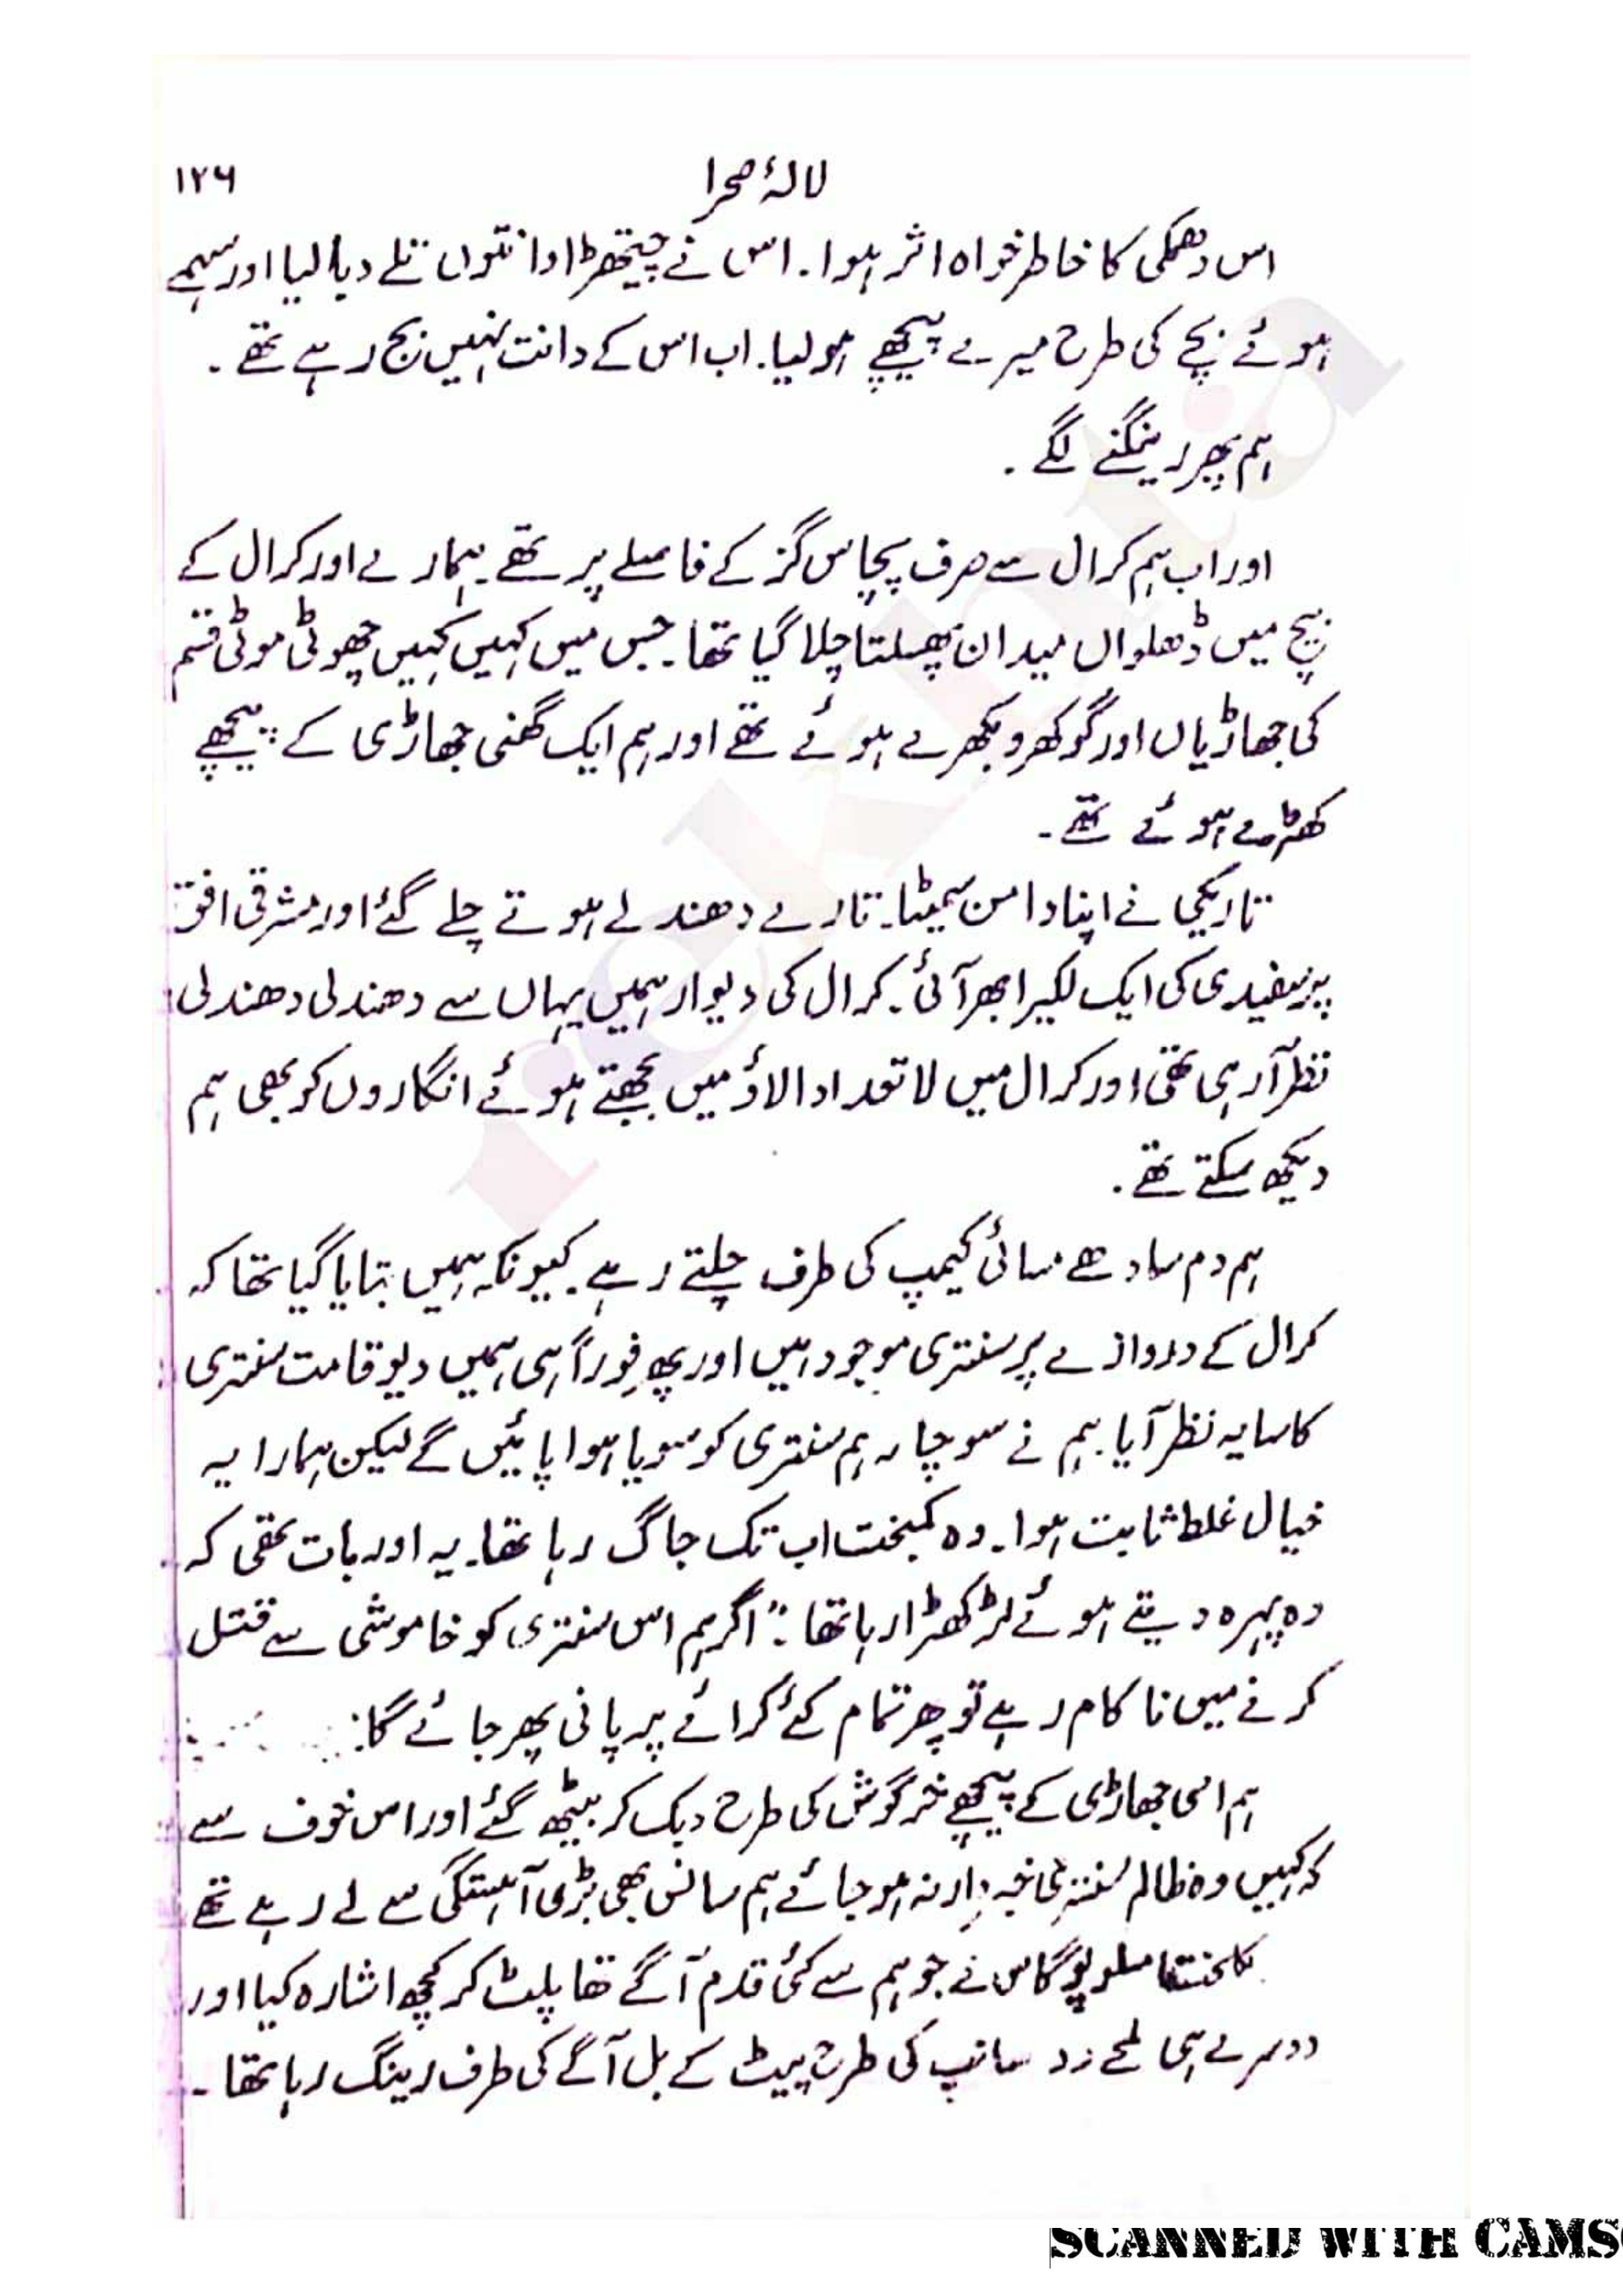 لالۂ صحرا ۱۲۶
اس دھمکی کا خاطر خواہ اثر ہوا۔ اس نے چیتھڑا دانتوں تلے دبا لیا اور سہمے
ہوئے بچے کی طرح میرے پیچھے ہو لیا۔ اب اس کے دانت نہیں بج رہے تھے۔
ہم پھر رینگنے لگے۔
اور اب ہم کرال سے صرف پچاس گز کے فاصلے پر تھے۔ ہمارے اور کرال کے
بیچ میں ڈھلواں میدان پھسلتا چلا گیا تھا۔ جس میں کہیں کہیں چھوٹی موٹی قسم
کی جھاڑیاں اور گوکھرو بکھرے ہوئے تھے اور ہم ایک گھنی جھاڑی کے پیچھے
کھڑے ہوئے تھے۔
تاریکی نے اپنا دامن سمیٹا۔ تارے دھندلے ہوتے چلے گئے اور مشرقی افق
پر سفیدی کی ایک لکیر ابھر آئی۔ کرال کی دیوار ہمیں یہاں سے دھندلی دھندلی
نظر آ رہی تھی اور کرال میں لاتعداد الاؤ میں بجھتے ہوئے انگاروں کو بھی ہم
دیکھ سکتے تھے۔
ہم دم سادھے مسائی کیمپ کی طرف چلتے رہے۔ کیونکہ ہمیں بتایا گیا تھا کہ
کرال کے دروازے پر سنتری موجود ہیں اور پھر فوراً ہی ہمیں دیو قامت سنتری
کا سایہ نظر آیا۔ ہم نے سوچا ہم سنتری کو سویا ہوا پائیں گے لیکن ہمارا یہ
خیال غلط ثابت ہوا۔ وہ کمبخت اب تک جاگ رہا تھا۔ یہ اور بات تھی کہ
وہ پہرہ دیتے ہوئے لڑکھڑا رہا تھا۔ "اگر ہم اس سنتری کو خاموشی سے قتل
کرنے میں ناکام رہے تو پھر تمام کئے کرائے پر پانی پھر جائے گا:
ہم اسی جھاڑی کے پیچھے خرگوش کی طرح دبک کر بیٹھ گئے اور اس خوف سے
کہ کہیں وہ ظالم سنتری خبردار نہ ہو جائے ہم سانس بھی بڑی آہستگی سے لے رہے تھے
سلوپوگاس نے جو ہم سے کئی قدم آگے تھا پلٹ کر کچھ اشارہ کیا اور
دوسرے ہی لمحے سانپ کی طرح پیٹ کے بل آگے کی طرف رینگ رہا تھا۔
SCANNED WITH CAMS